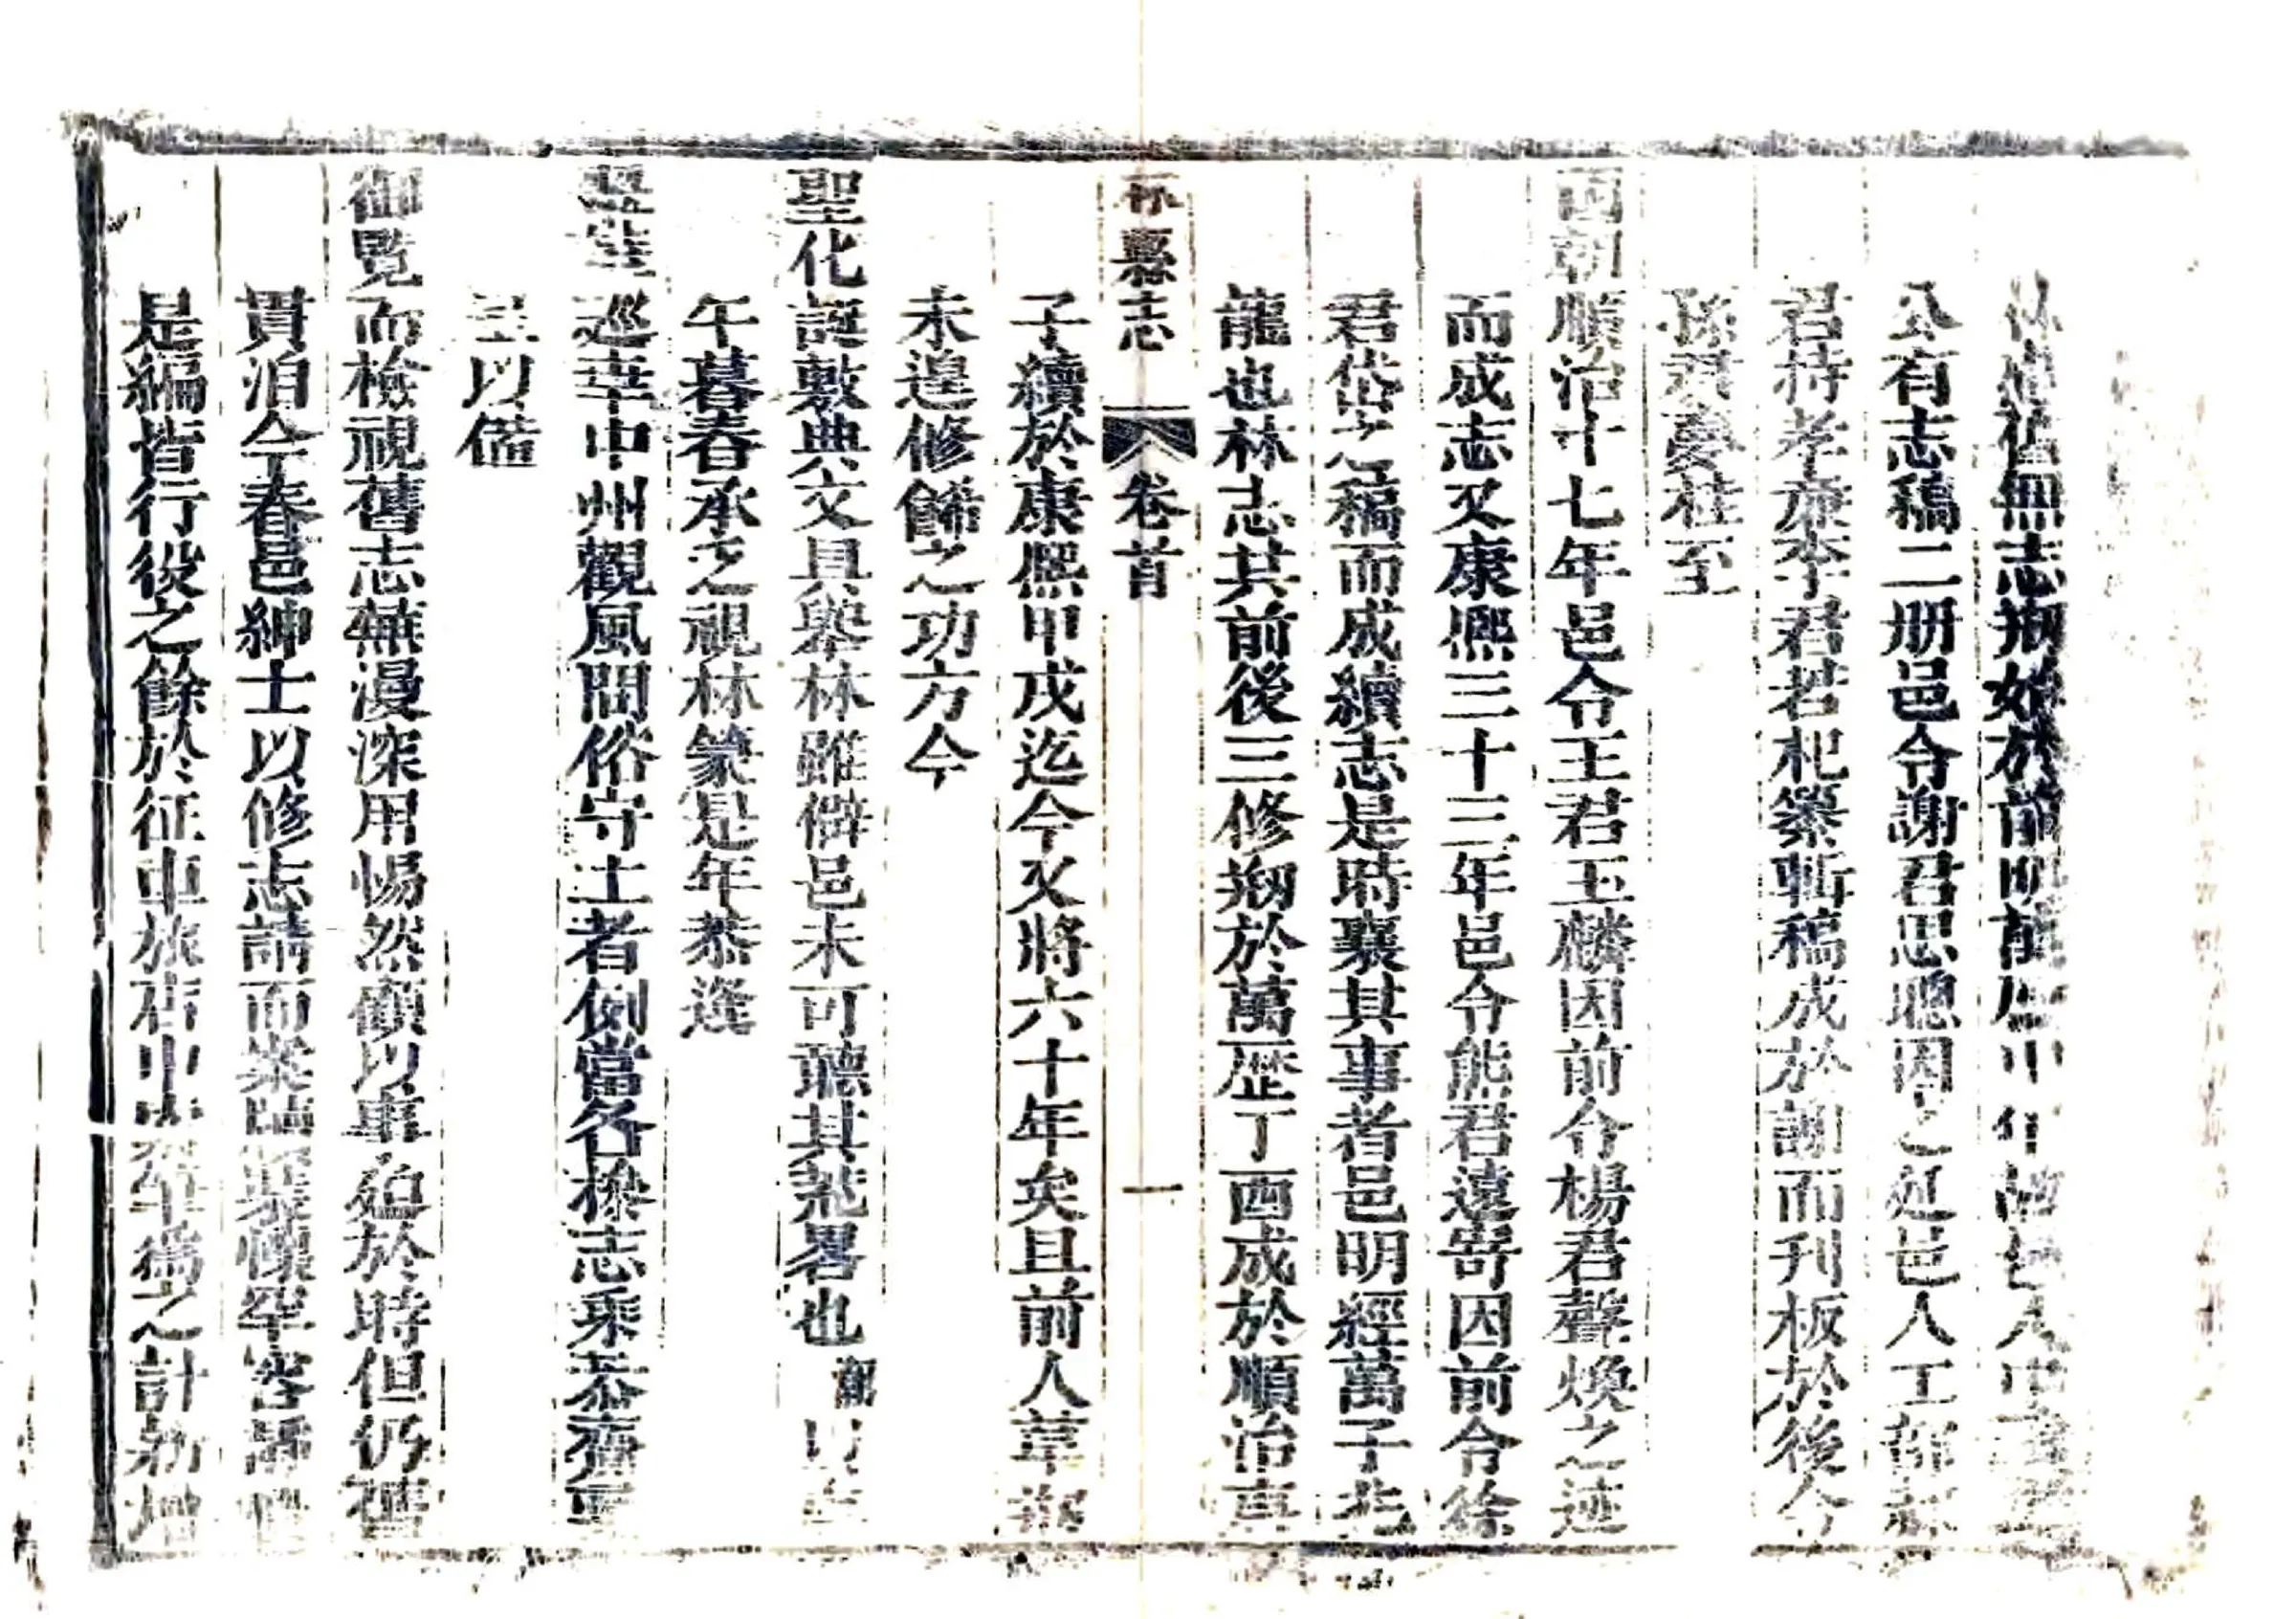 舊無志剏始於前明萬人
公有志稿二册邑令謝君思聰因之延邑人工部
君持孝亷李君若杞纂輯稿成於謝而刊板於後令
孫君夢柱至
國朝順治十七年邑令王君玉麟因前令楊君聲煥之述
而成志又康熙三十三年邑令熊君遠寄因前令徐
君岱之稿而成續志是時襄其事者邑明經萬子兆
龍也林志其前後三修剏於萬歷丁酉成於順治庚
林縣志
卷首
一
子續於康熙甲戌迄今又將六十年矣且前人草
未遑修餙之功方今
聖化誕敷典文具舉林雖僻邑未可聽其荒畧也以
午暮春承乏視林篆是年恭逢
巡幸中州觀風問俗守土者例當各採志乘恭齎
呈以備
御覧而檢視舊志蕪漫深用惕然顧以事廹於時但仍舊
貫洎今春邑紳士以修志請而
是編皆行役之餘於征車旅店中為之計新增